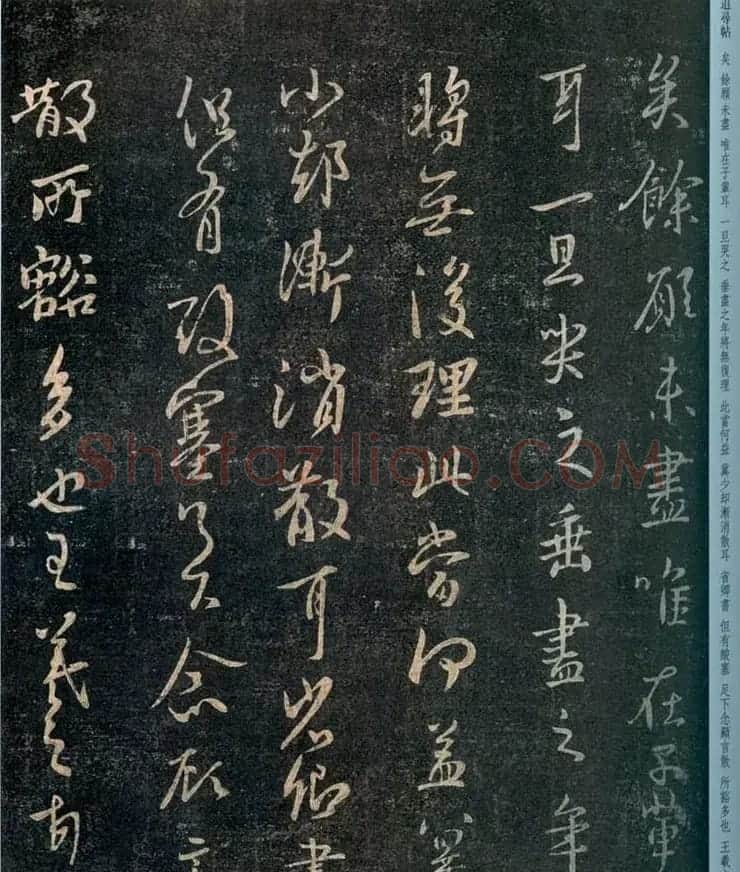 追尋帖 矣 餘願未盡 唯在子輩耳 一旦哭之 垂盡之年將無復理 此當何益 冀少却漸消散耳 省卿書 但有酸塞 足下念顧言散 所豁多也 王羲
矣餘願未盡唯在子輩
耳一旦哭之垂盡之年
將無復理此當何益冀
小却漸消散耳省卿書
但有酸塞足下念顧言
散所豁多也王羲之頓
Shufaziliao.COM